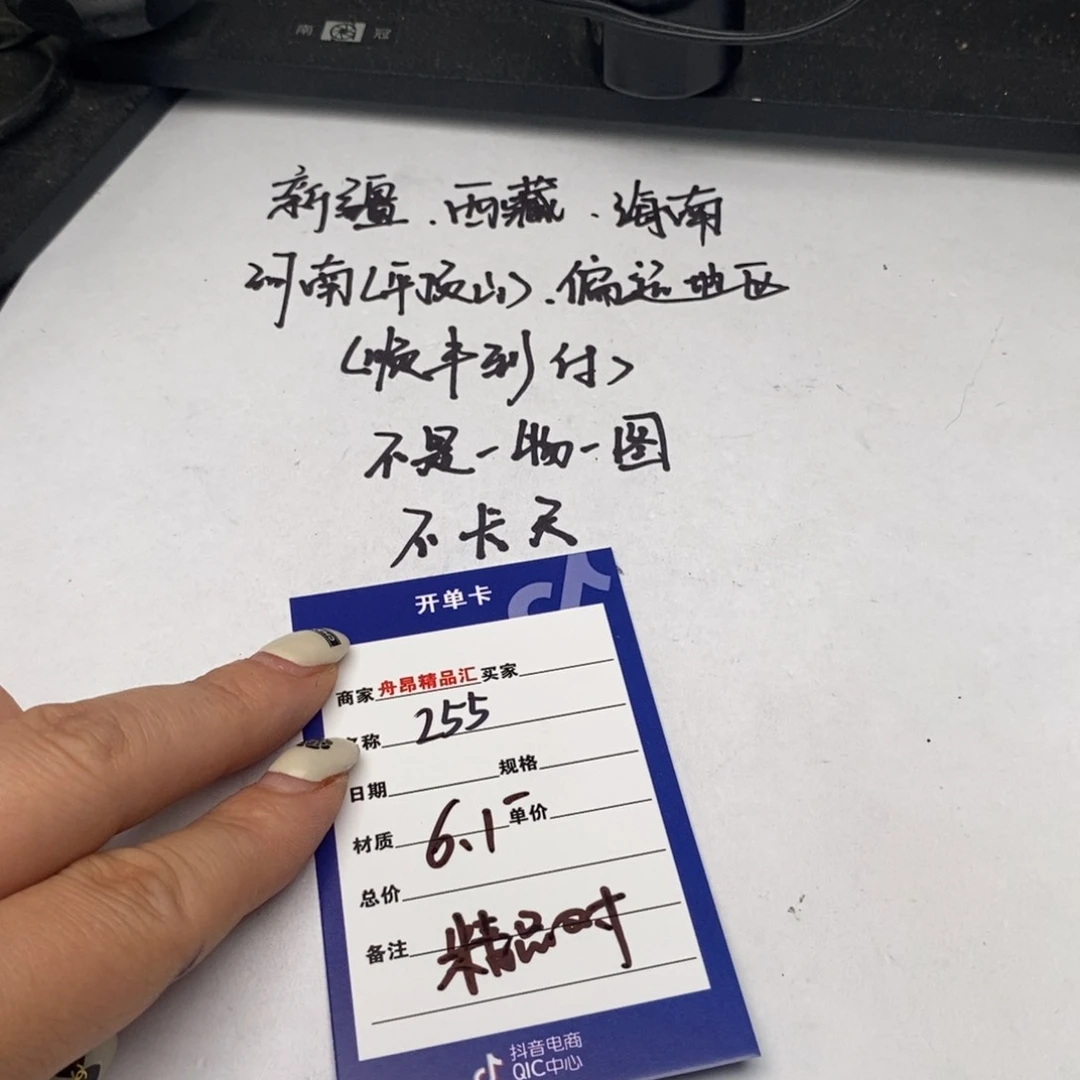 南 冠
新疆、西藏、海南
河南(平顶山)、偏远地区
(顺丰到付)
不是一物一图
不卡天
开单卡
商家 舟昂精品汇 买家
名称 255
日期 规格
材质 6.1 单价
总价
备注 精品
抖音电商
QIC中心